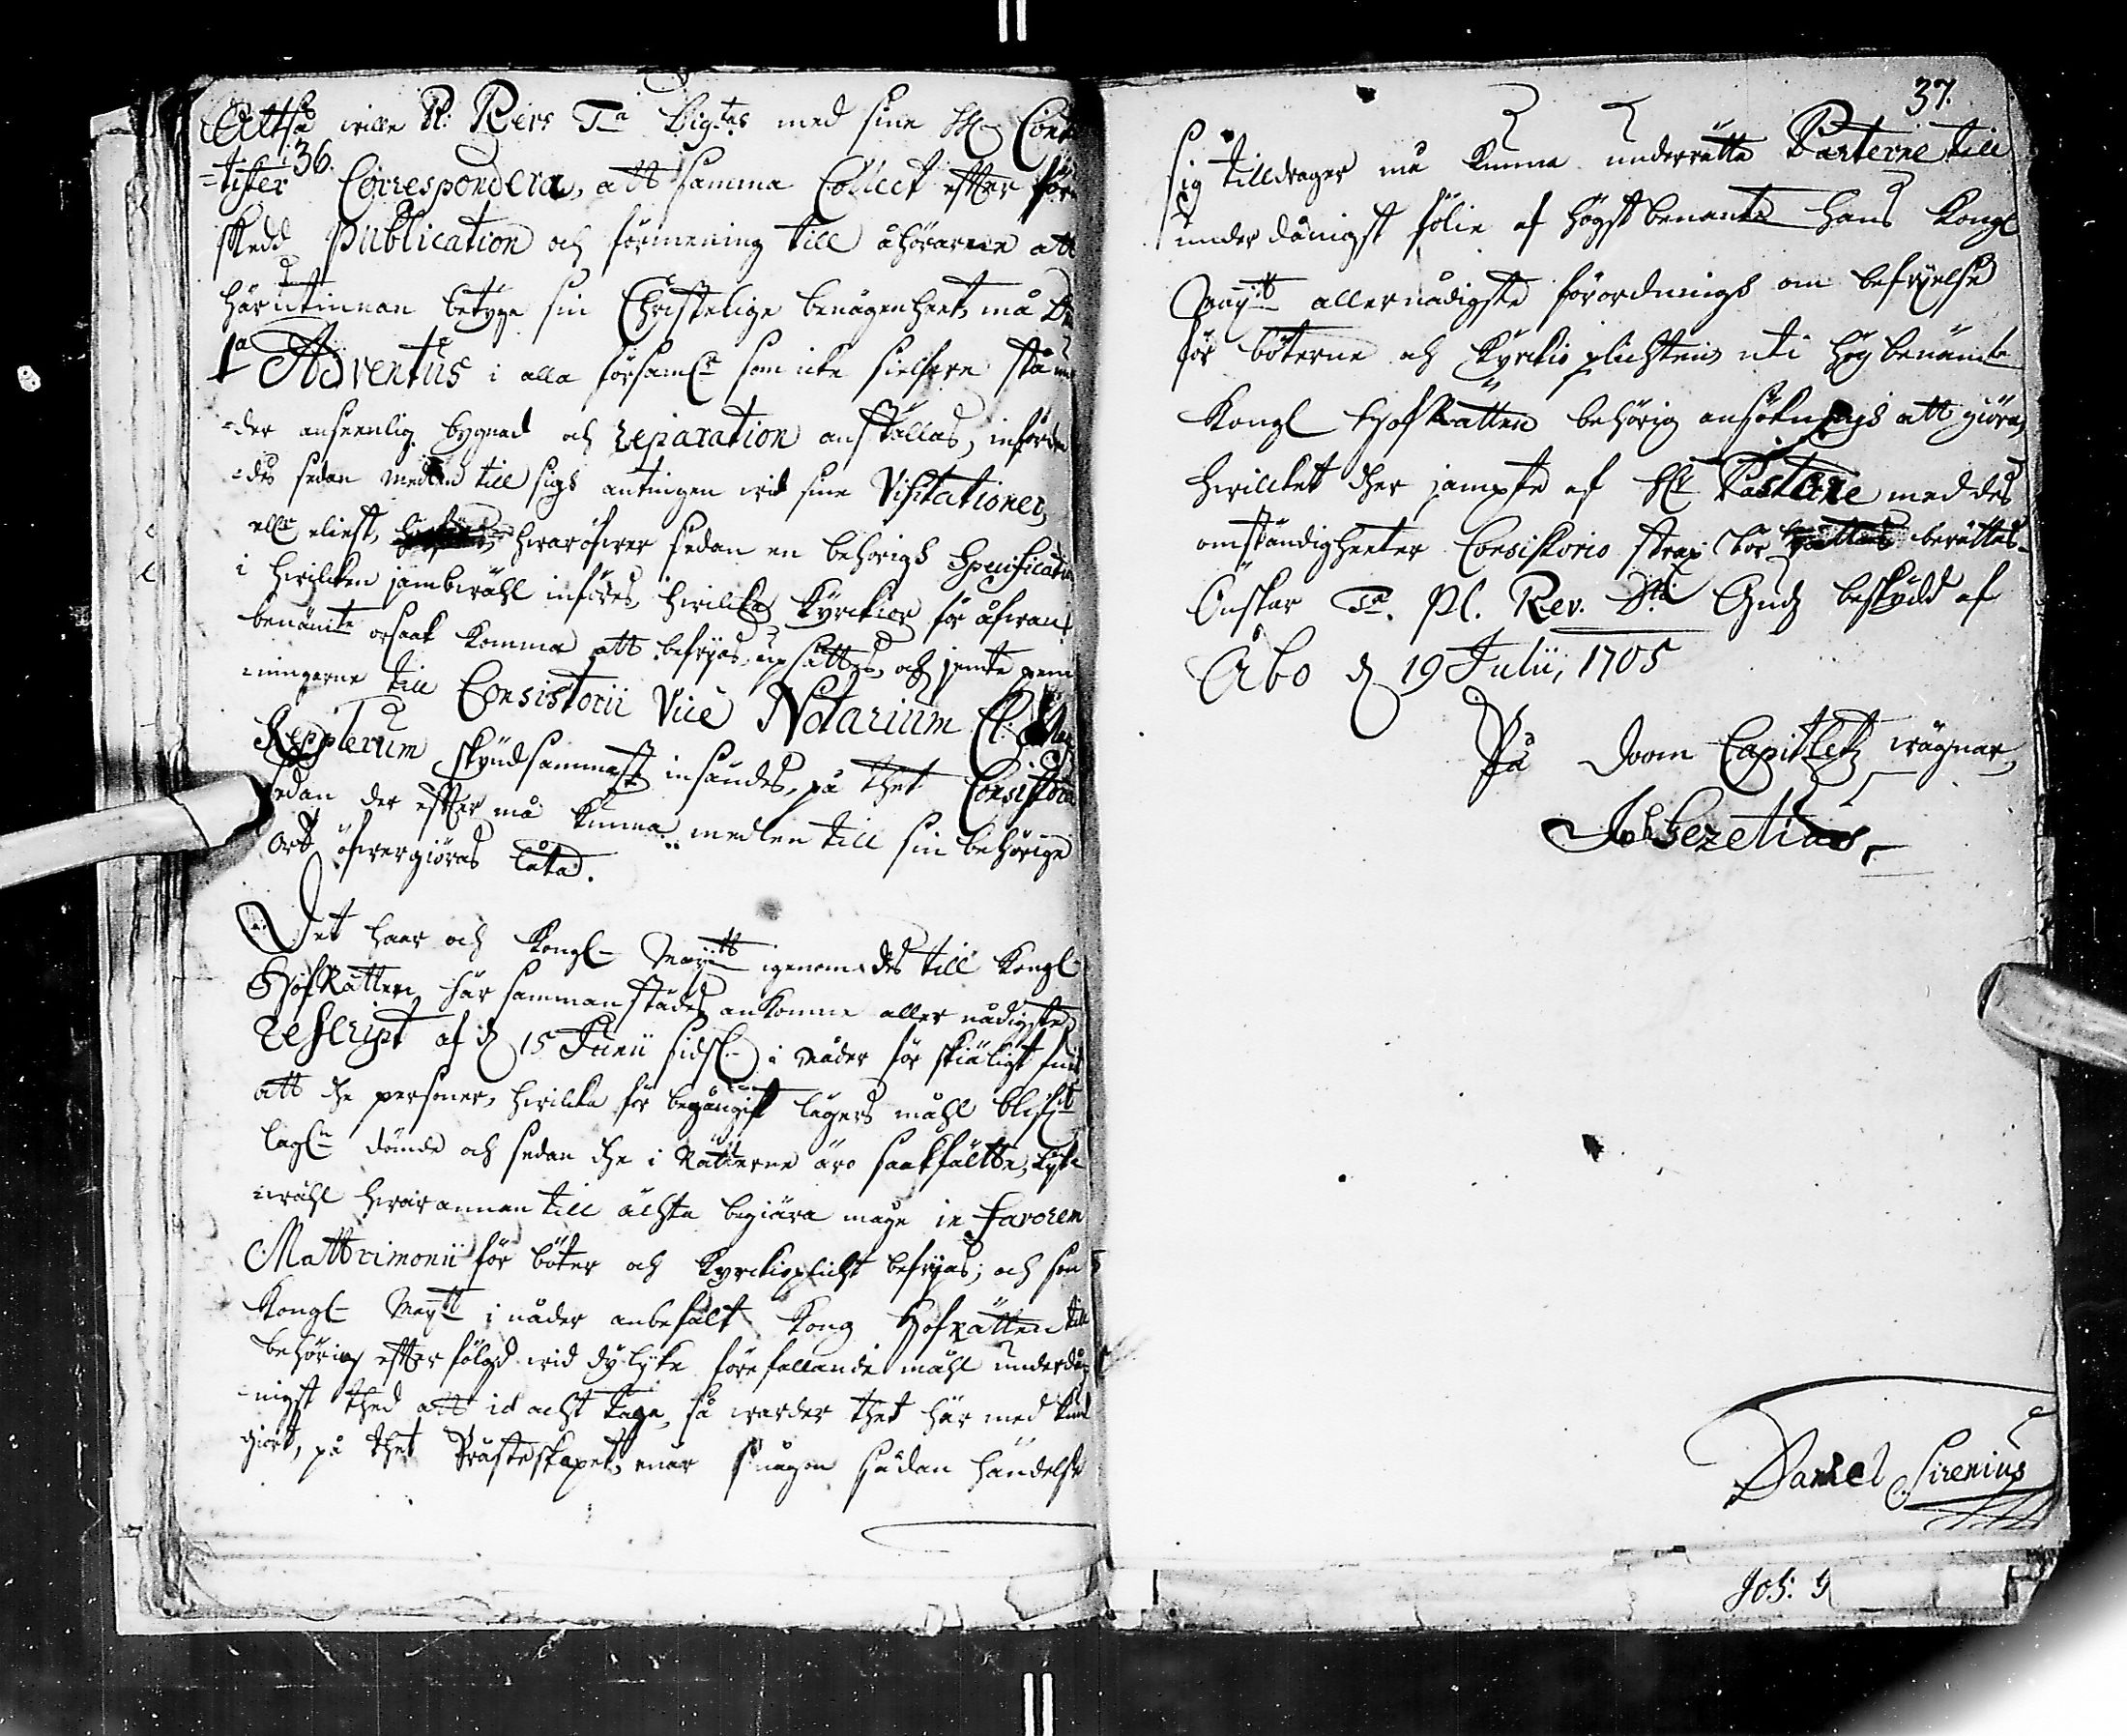 36.
Altså wille Pl: Revs Ta Digtas med sine HH Con-
=tister Correspondera, att samma Collect effter för
skedd Publication och förmening till åhörarne att
härutinnan betyga sin Christelige benägenheet, må D
1a Adventus i alla församl som icke sielfwe stå
=der ansenlig bygnad och reparation anställas, inford
=des sedan medlen till sigh antingen wid sine Visitationer,
eller eliest, hwaröfwer sedan en behörigh Specification
i hwilcken jämbwähl införes, hwilcka Kyrckior för åfwan
benämte orsaak komma att befryas, upsättes, och jemte pen
ningarne till Consistorii Vice Notarium Cl:
Kepplerum skyndsammast insändes, på thet Consistorium
sedan der effter må kunna medlen till sin behörige
ort öfwergiöras låta.
Det haar och Kongl Maytt igenom des till Kongl
HofRätten här sammanstädes ankomne allernådigste
rescript af d 15 Junii sidstl i nåder för skiäligt funit
att the personer, hwilcka för begångit lägers mähl blifwit
lagl dömde och sedan the i Rätterne äro saakfälte, lyke
wähl hwarannan till ächta begiära mage in favorem
Mattrimonii för böter och Kyrckioplicht befryas; och som
Kongl Maytt i nåder anbefalt Kong Hofrätten till
behörig effterfölgd wid dylyke förefallande mähl underdå-
nigst thed att i acht taga, så warder thet här med kund
giort, på thet Prästeskapet, när någon sådan händelse
37.
sig tilldrager må kunna underrätta Parterne till
underdånigst fölie af högstbenante Hans Kongl
Maytt allernådigste förordningh om befryelse
för böterne och Kyrckioplichten uti högbenämte
Kongl HofRätten behörig ansökningh att giöra,
hwilcket ther jämpte af Hr Pastore med des
omständigheeter Consistorio strax bör berättas.
Önskar Ta. Pl. Rev. Gudz beskydd af
Åbo d 19 Julii, 1705
På Doom Capitletz wägnar,
Joh Gezelius.
Daniel Sirenius
Joh: G